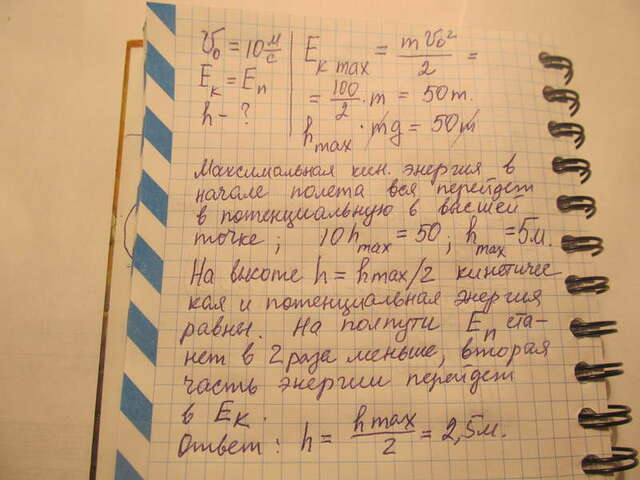 v₀ = 10 м/с
Eк = Eп
h - ?
Eк max = mv₀²/2 =
= 100/2 · m = 50m.
hmax · mg = 50m
Максимальная кин. энергия в
начале полета вся перейдет
в потенциальную в высшей
точке; 10hmax = 50; hmax = 5м.
На высоте h = hmax/2 кинетичес
кая и потенциальная энергия
равны. На полпути Eп ста-
нет в 2 раза меньше, вторая
часть энергии перейдет
в Eк.
Ответ: h = hmax/2 = 2,5м.